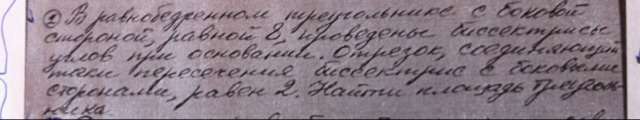 ① В равнобедренном треугольнике с боковой
стороной, равной 8, проведены биссектрисы
углов при основании. Отрезок, соединяющий
точки пересечения биссектрис с боковыми
сторонами, равен 2. Найти площадь треуголь-
ника.